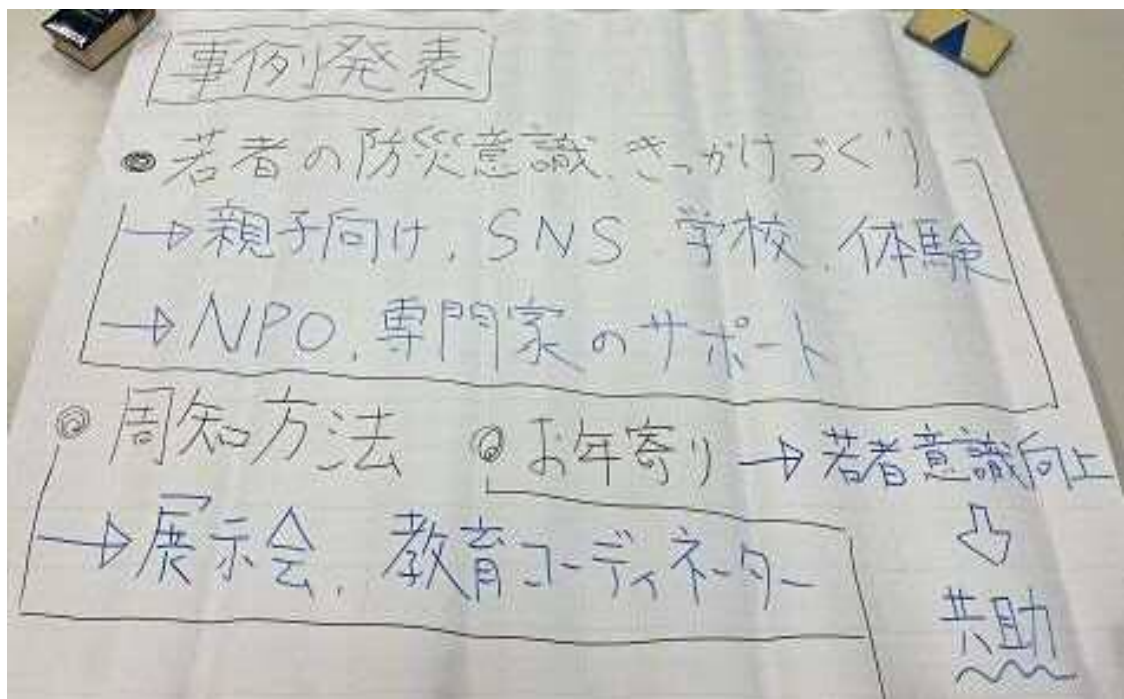 事例発表
◎若者の防災意識、きっかけづくり
→親子向け、SNS 学校、体験
→NPO、専門家のサポート
◎周知方法 ◎お年寄り→若者意識向上
→展示会、教育コーディネーター
⇩
共助